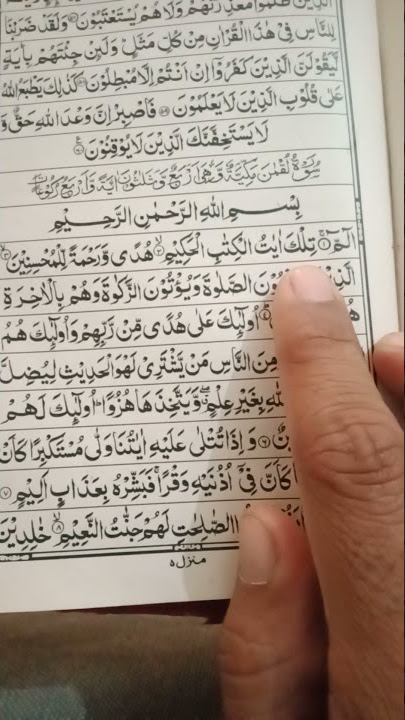 الَّذِيْنَ ظَلَمُوْا مَعْذِرَتُهُمْ وَلَا هُمْ يُسْتَعْتَبُوْنَ ۵۷ وَلَقَدْ ضَرَبْنَا
لِلنَّاسِ فِيْ هٰذَا الْقُرْاٰنِ مِنْ كُلِّ مَثَلٍ ؕ وَلَئِنْ جِئْتَهُمْ بِاٰيَةٍ
لَّيَقُوْلَنَّ الَّذِيْنَ كَفَرُوْۤا اِنْ اَنْتُمْ اِلَّا مُبْطِلُوْنَ ۵۸ كَذٰلِكَ يَطْبَعُ اللّٰهُ
عَلٰى قُلُوْبِ الَّذِيْنَ لَا يَعْلَمُوْنَ ۵۹ فَاصْبِرْ اِنَّ وَعْدَ اللّٰهِ حَقٌّ وَّ
لَا يَسْتَخِفَّنَّكَ الَّذِيْنَ لَا يُوْقِنُوْنَ ۶۰
سُوْرَةُ لُقْمٰنَ مَكِّيَّةٌ وَّهِيَ اَرْبَعٌ وَّثَلٰثُوْنَ اٰيَةً وَّاَرْبَعُ رُكُوْعَاتٍ
بِسْمِ اللّٰهِ الرَّحْمٰنِ الرَّحِيْمِ
الٓمّٓ ۱ تِلْكَ اٰيٰتُ الْكِتٰبِ الْحَكِيْمِ ۲ هُدًى وَّرَحْمَةً لِّلْمُحْسِنِيْنَ ۳
الصَّلٰوةَ وَيُؤْتُوْنَ الزَّكٰوةَ وَهُمْ بِالْاٰخِرَةِ
اُولٰٓئِكَ عَلٰى هُدًى مِّنْ رَّبِّهِمْ وَاُولٰٓئِكَ هُمُ
مِنَ النَّاسِ مَنْ يَّشْتَرِيْ لَهْوَ الْحَدِيْثِ لِيُضِلَّ
بِغَيْرِ عِلْمٍ ۖ وَّيَتَّخِذَهَا هُزُوًا ؕ اُولٰٓئِكَ لَهُمْ
۶ وَاِذَا تُتْلٰى عَلَيْهِ اٰيٰتُنَا وَلّٰى مُسْتَكْبِرًا كَاَنْ
كَاَنَّ فِيْۤ اُذُنَيْهِ وَقْرًا ۚ فَبَشِّرْهُ بِعَذَابٍ اَلِيْمٍ ۷
الصّٰلِحٰتِ لَهُمْ جَنّٰتُ النَّعِيْمِ ۸ خٰلِدِيْنَ
منزل ۵